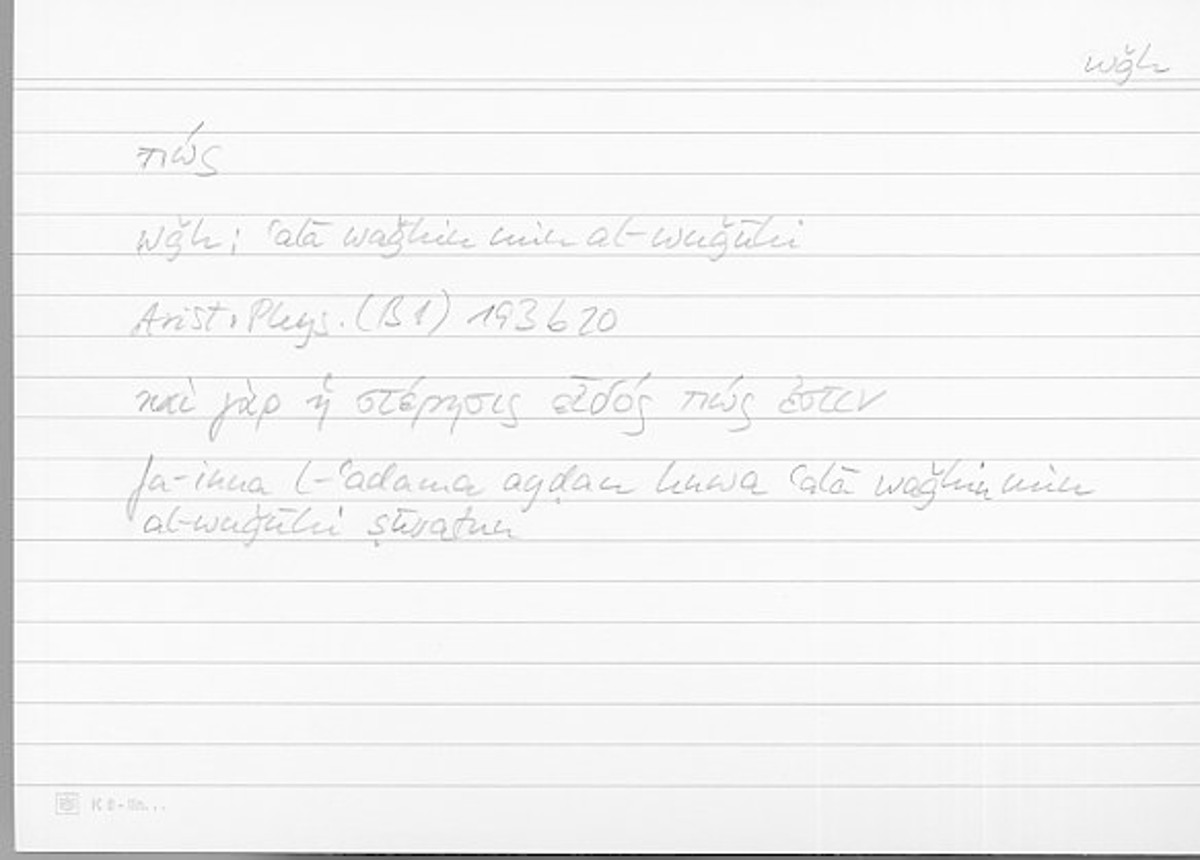 wǧh
πώς
wǧh; ʿalā waǧhin min al-wuǧūhi
Arist. Phys. (B1) 193b20
καὶ γὰρ ἡ στέρησις εἶδός πώς ἐστιν
fa-inna l-ʿadama ayḍan huwa ʿalā waǧhin min
al-wuǧūhi ṣūratun